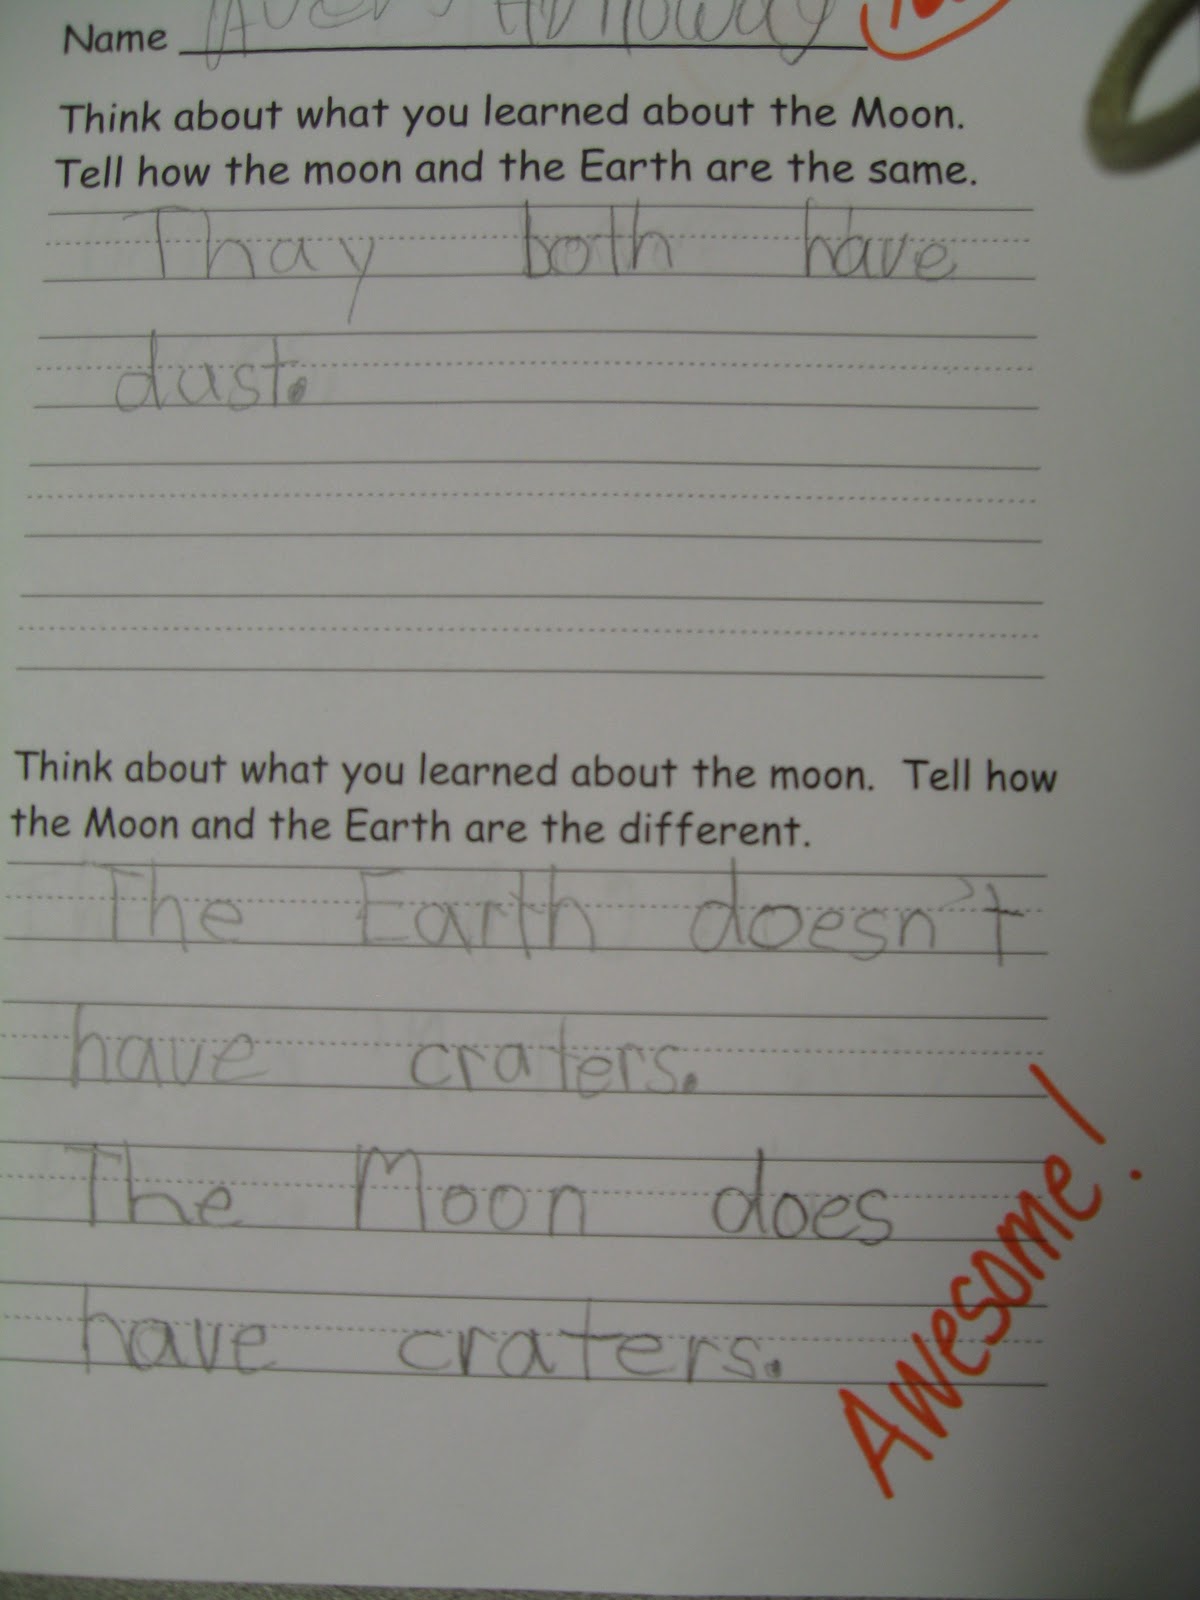 Name
Think about what you learned about the Moon.
Tell how the moon and the Earth are the same.
Thay both have
dust.
Think about what you learned about the moon. Tell how
the Moon and the Earth are the different.
The Earth doesn't
have craters.
The Moon does
have craters.
Awesome!